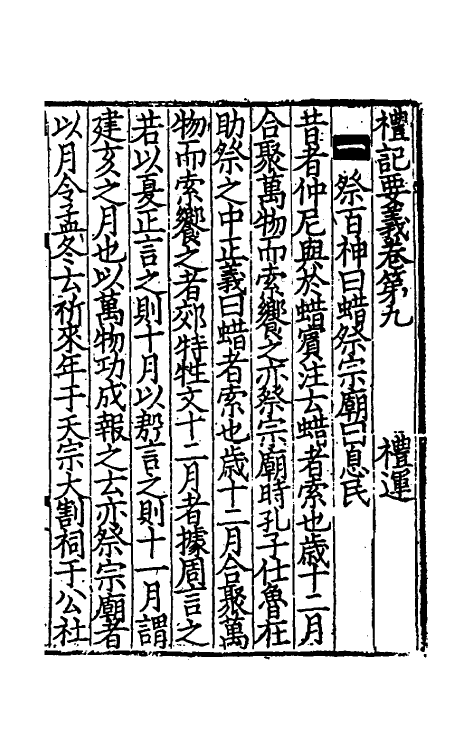 禮記要義卷第九 禮運
一 祭百神曰蜡祭宗廟曰息民
昔者仲尼與於蜡賓注云蜡者索也歲十二月
合聚萬物而索饗之亦祭宗廟時孔子仕魯在
助祭之中正義曰蜡者索也歲十二月合聚萬
物而索饗之者郊特牲文十二月者據周言之
若以夏正言之則十月以殷言之則十一月謂
建亥之月也以萬物功成報之云亦祭宗廟者
以月令孟冬云祈來年于天宗大割祠于公社